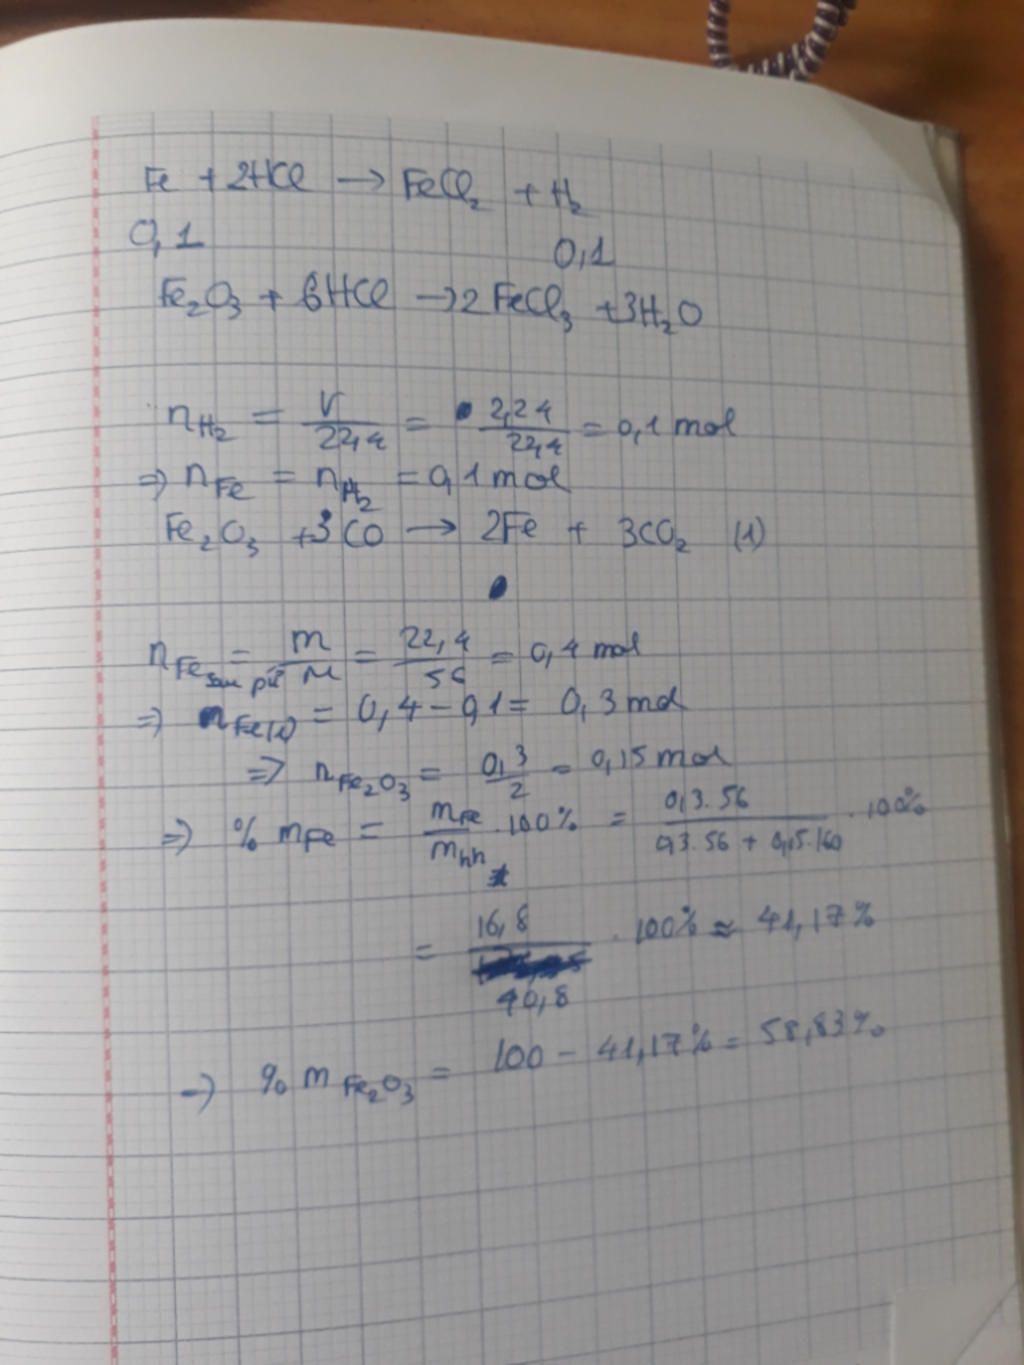 Fe + 2HCl → FeCl₂ + H₂
0,1 0,1
Fe₂O₃ + 6HCl → 2FeCl₃ + 3H₂O
n H₂ = V/22,4 = 2,24/22,4 = 0,1 mol
⇒ n Fe = n H₂ = 0,1 mol
Fe₂O₃ + 3CO → 2Fe + 3CO₂ (1)
n Fe sau pứ = m/M = 22,4/56 = 0,4 mol
⇒ n Fe(1) = 0,4 - 0,1 = 0,3 mol
⇒ n Fe₂O₃ = 0,3/2 = 0,15 mol
⇒ % m Fe = m Fe/m hh . 100% = 0,3.56/0,3.56 + 0,15.160 . 100%
= 16,8/40,8 . 100% ≈ 41,17%
→ % m Fe₂O₃ = 100 - 41,17% = 58,83%